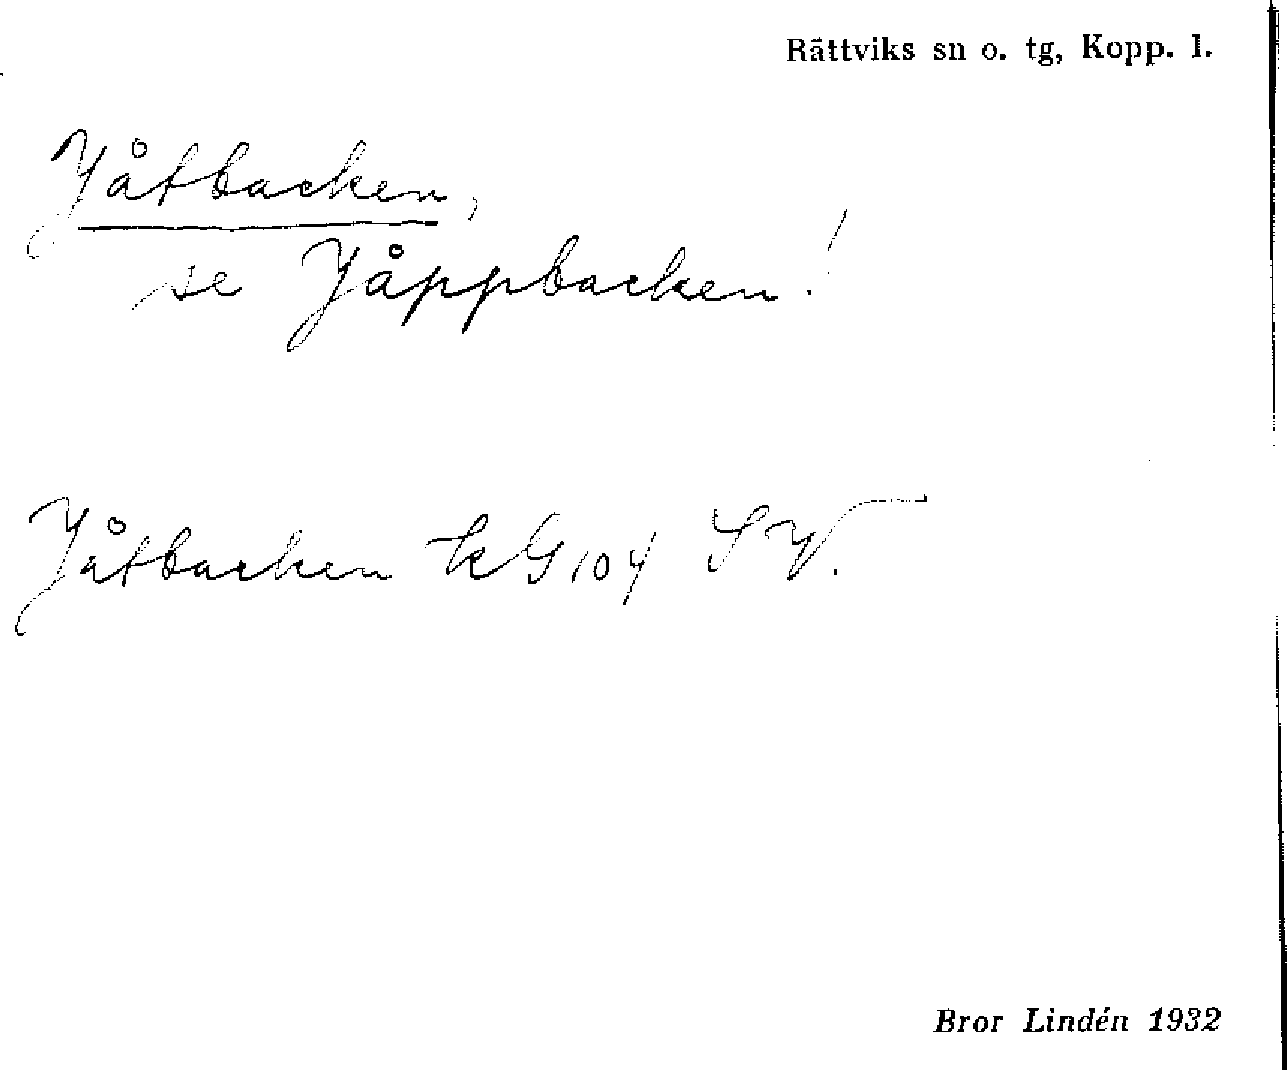 Rättviks sn o. tg, Kopp. l.
Jåtbacken,
se Jåppbacken!
Jåtbacken kG 104 SV.
Bror Lindén 1932